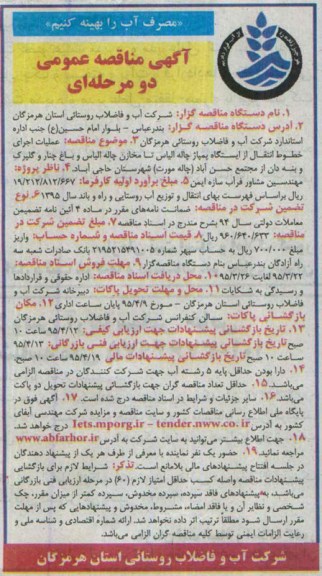 «مصرف آب را بهینه کنیم»
آگهی مناقصه عمومی
دو مرحله‌ای
۱. نام دستگاه مناقصه گزار: شرکت آب و فاضلاب روستائی استان هرمزگان
۲. آدرس دستگاه مناقصه گزار: بندرعباس - بلوار امام حسین(ع) جنب اداره
استاندارد شرکت آب و فاضلاب روستائی هرمزگان ۳. موضوع مناقصه: عملیات اجرای
خطوط انتقال از ایستگاه پمپاژ چاله الیاس تا مخازن چاله الیاس و باغ چنار و گلیرک
و بنه دان از مجتمع حسن آباد (چاله مورت) شهرستان حاجی آباد. ۴. ناظر پروژه:
مهندسین مشاور فرآب سازه ایمن ۵. مبلغ برآورد اولیه کارفرما: ۱۹/۲۱۲/۸۱۲/۶۶۷
ریال براساس فهرست بهای انتقال و توزیع آب روستایی و راه و باند سال ۱۳۹۵ ۶. نوع
تضمین شرکت در مناقصه: ضمانت نامه‌های مقرر در ماده ۴ آئین نامه تضمین
معاملات دولتی سال ۹۴ بشرح مندرج در اسناد مناقصه ۷. مبلغ تضمین شرکت در
مناقصه: ۹۶۰/۶۴۰/۶۳۳ ریال ۸. قیمت اسناد مناقصه و شماره حساب: واریز
مبلغ ۷۰۰/۰۰۰ ریال به شماره سپهر شماره ۲۱۹۵۲۱۵۴۹۱۰۰۵ بانک صادرات شعبه سه
راه آزادگان بندرعباس بنام دستگاه مناقصه گزار ۹. مهلت فروش اسناد مناقصه:
۹۵/۳/۲۲ لغایت ۹۵/۳/۲۶ ۱۰. محل دریافت اسناد مناقصه: اداره حقوقی و قراردادها
و رسیدگی به شکایات ۱۱. محل و مهلت تحویل پاکات: دبیرخانه شرکت آب و
فاضلاب روستائی استان هرمزگان - مورخ ۹۵/۴/۹ پایان ساعت اداری ۱۲. مکان
بازگشائی پاکات: سالن کنفرانس شرکت آب و فاضلاب روستائی هرمزگان
۱۳. تاریخ بازگشائی پیشنهادات جهت ارزیابی کیفی: ۹۵/۴/۱۲ ساعت ۱۰
صبح تاریخ بازگشائی پیشنهادات جهت ارزیابی فنی بازرگانی: ۹۵/۴/۱۳
ساعت ۱۰ صبح تاریخ بازگشائی پیشنهادات مالی ۹۵/۴/۱۹ ساعت ۱۰ صبح.
۱۴. دارا بودن حداقل پایه ۵ رشته آب جهت شرکت کنندگان در مناقصه الزامی
می‌باشد. ۱۵. حداقل تعداد مناقصه گران جهت بازگشائی پیشنهادات تحویل دو پاکت
می‌باشد. ۱۶. سایر جزئیات و شرایط در اسناد مناقصه درج شده است. ۱۷. آگهی فوق در
پایگاه ملی اطلاع رسانی مناقصات کشور و سایت مناقصه و مزایده شرکت مهندسی آبفای
کشور به آدرس Iets.mporg.ir - tender.nww.co.ir درج خواهد شد.
۱۸. جهت اطلاع بیشتر می‌توانید به سایت شرکت به آدرس www.abfarhor.ir
مراجعه نمائید. ۱۹. حضور یک نفر نماینده با معرفی از طرف هر یک از پیشنهاد دهندگان
در جلسه افتتاح پیشنهادهای مالی بلامانع است. تذکر: شرایط لازم برای بازگشایی
پیشنهادات مناقصه واصله کسب حداقل امتیاز لازم (۶۰) در مرحله ارزیابی فنی بازرگانی
می‌باشد، به پیشنهادهای فاقد سپرده، سپرده مخدوش، سپرده کمتر از میزان مقرر، چک
شخصی و نظایر آن و یا فاقد امضاء، مشروط، مخدوش و پیشنهادهایی که پس از مهلت
مقرر ارسال شود مطلقاً ترتیب اثر داده نخواهد شد. ارائه شماره اقتصادی و شناسه ملی و
رعایت الزامات ایمنی توسط کلیه مناقصه گران الزامی می‌باشد.
شرکت آب و فاضلاب روستائی استان هرمزگان